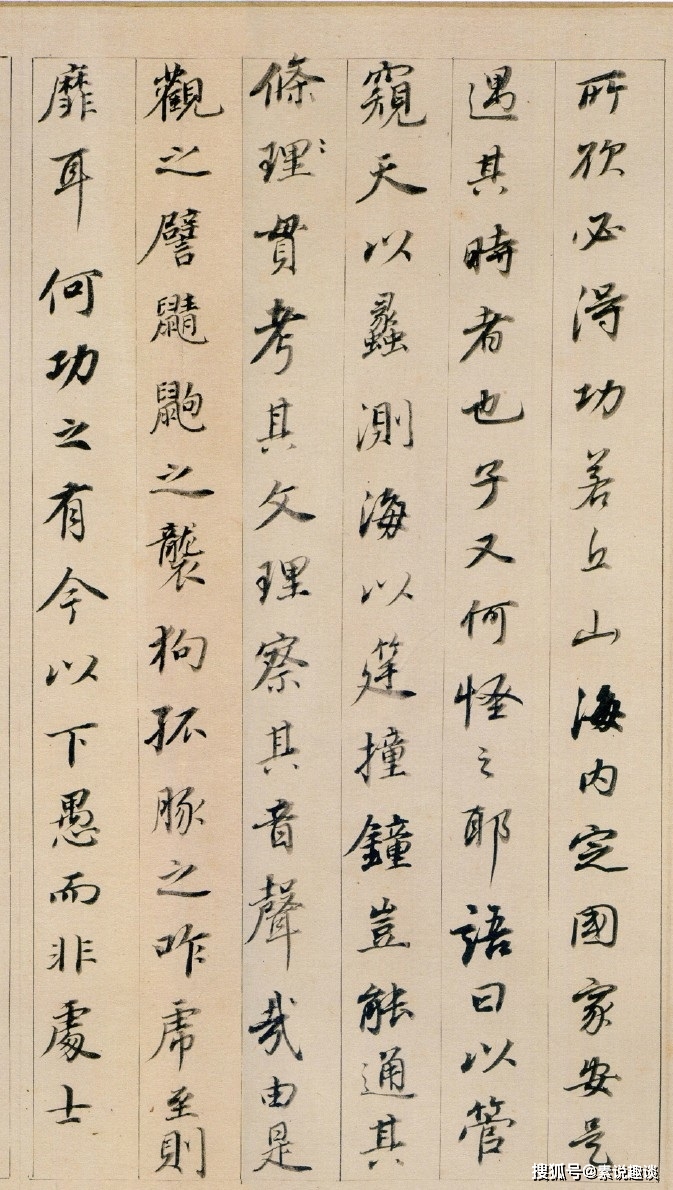 所欲必淂功若丘山海内定國家安是
遇其時者也子又何怪之耶語曰以管
窺天以蠡測海以筳撞鐘豈能通其
條理〻貫考其文理察其音聲哉由是
觀之譬鼱鼩之襲狗孤豚之咋虎至則
靡耳何功之有今以下愚而非處士
搜狐号@素说趣谈